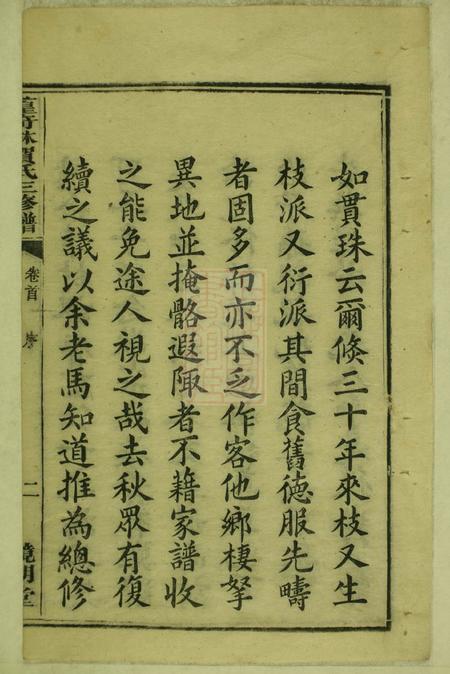 如貫珠云爾倏三十年來枝又生
枝派又衍派其間食舊德服先疇
者固多而亦不乏作客他鄉棲孥
異地並掩骼遐陬者不藉家譜收
之能免途人視之哉去秋眾有復
續之議以余老馬知道推為總修
賀氏三修譜
卷首
序
二